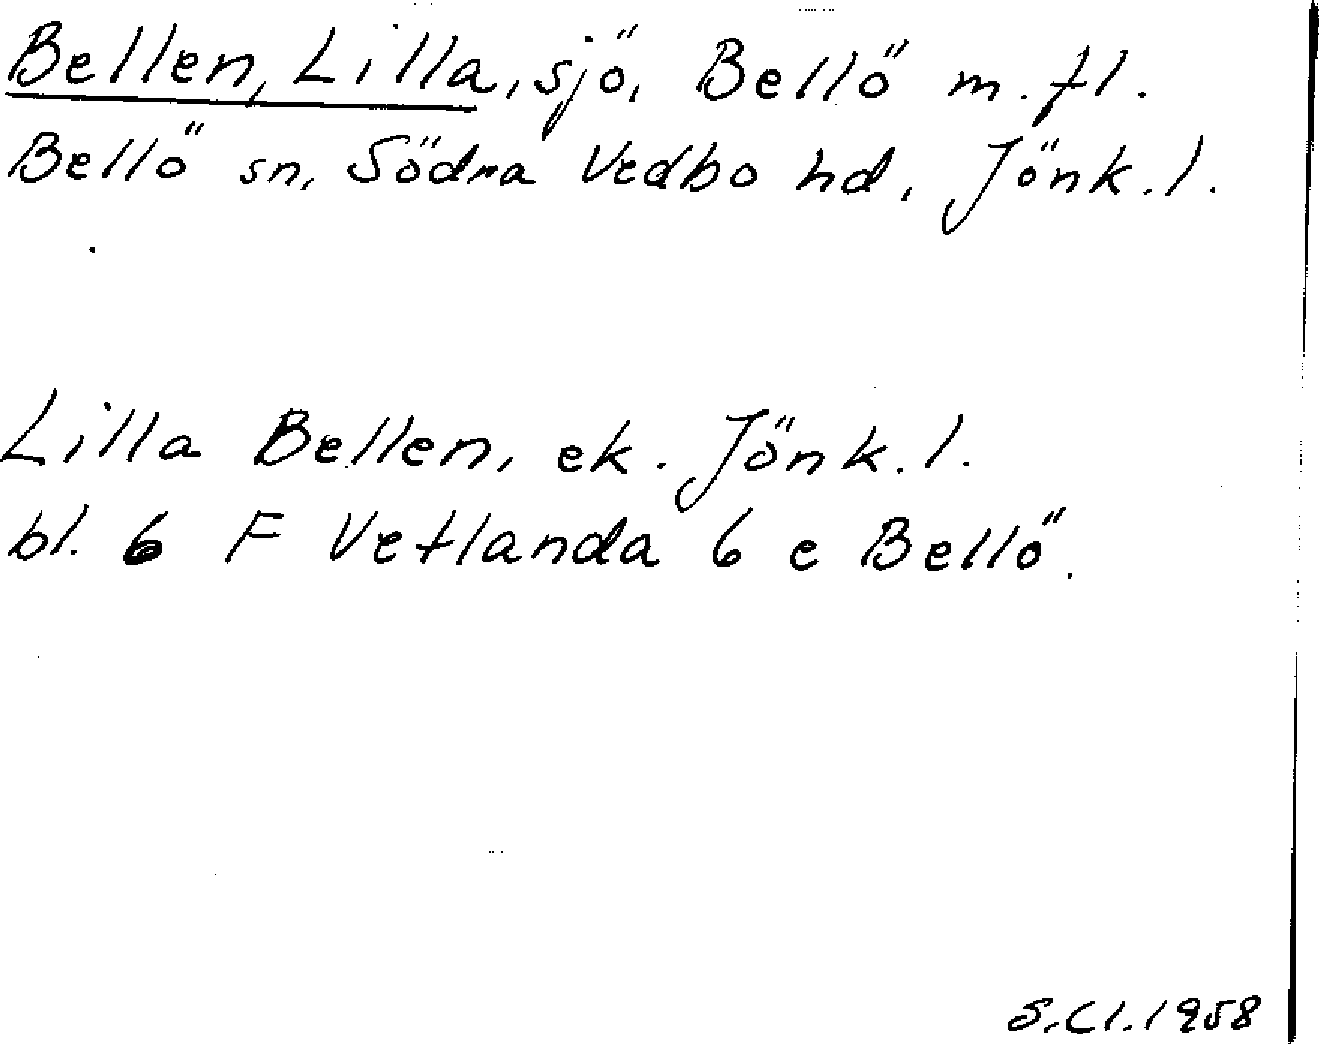 Bellen, Lilla, sjö, Bellö m.fl.
Bellö sn, Södra Vedbo hd, Jönk.l.
Lilla Bellen, ek. Jönk.l.
bl. 6 F Vetlanda 6 e Bellö.
S.Cl.1958